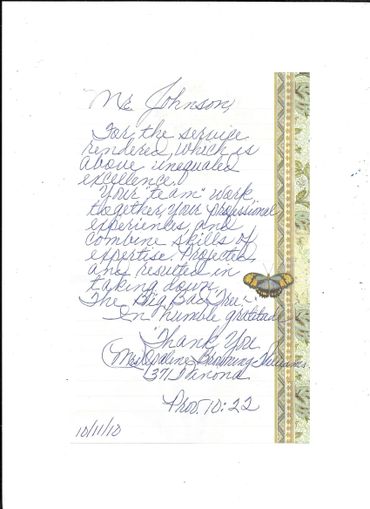 Mr. Johnson,
For the service
rendered, which is
above unequaled
excellence!
Your "team" work
together, your professional
experiences, and
combine skills of
expertise projected
and resulted in
taking down
The "Big Bad Tree".
In humble gratitude
Thank You
(Mrs. Browning Williams
Prov. 10:22
10/11/10